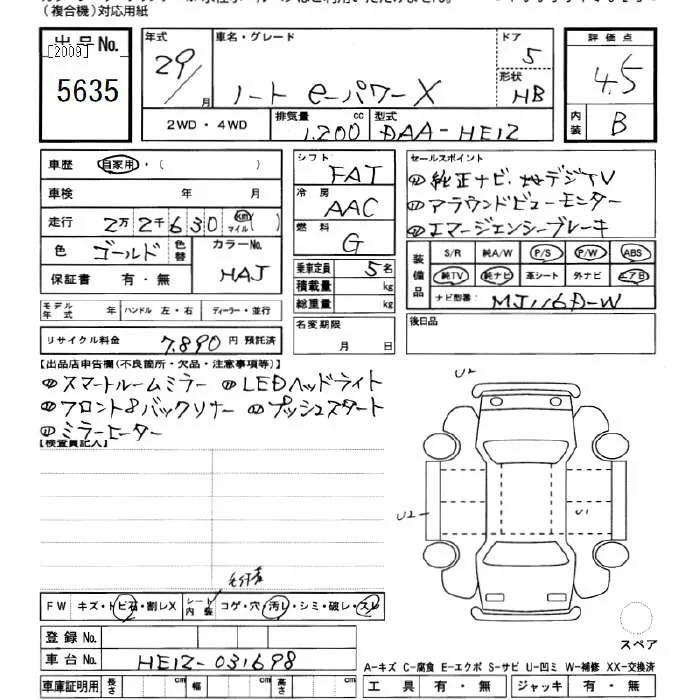 （複合機）対応用紙
出品No.
[2009]
5635
年式 車名・グレード ドア
29/ 月 ノート e-パワーX 5
形状 HB
2WD・4WD 排気量 1,200 cc 型式 DAA-HE12
評価点
4.5
内装 B
車歴 自家用・( )
車検 年 月
走行 2万2千630 km マイル( )
色 ゴールド 色替 カラーNo. HAJ
保証書 有・無
モデル年式 年 ハンドル 左・右 ディーラー・並行
リサイクル料金 7,890円 預託済
シフト FAT
冷房 AAC
燃料 G
乗車定員 5名
積載量 kg
総重量 kg
名変期限 月 日
セールスポイント
純正ナビ・地デジTV
アラウンドビューモニター
エマージェンシーブレーキ
装備品 S/R 純A/W P/S P/W ABS
純TV 純ナビ 革シート 外ナビ エアB
ナビ型番: MJ116D-W
後日品
【出品店申告欄(不良箇所・欠品・注意事項等)】
スマートルームミラー LEDヘッドライト
フロント&バックソナー プッシュスタート
ミラーヒーター
【検査員記入】
U2
U2
U1
FW キズ・トビ石・割レX シート内装 コゲ・穴・汚レ・シミ・破レ・スレ
登録No.
車台No. HE12-031698
車庫証明用 長さ cm 幅 cm 高さ cm
スペア
A-キズ C-腐食 E-エクボ S-サビ U-凹ミ W-補修 XX-交換済
工具 有・無 ジャッキ 有・無